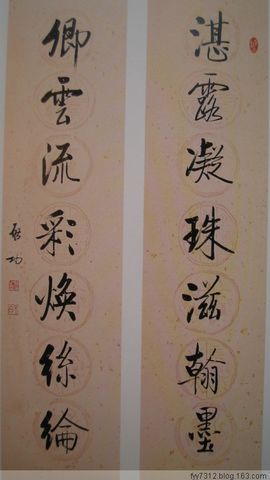 湛露凝珠滋翰墨
卿雲流彩焕絲綸
啟功
fyy7312.blog.163.com